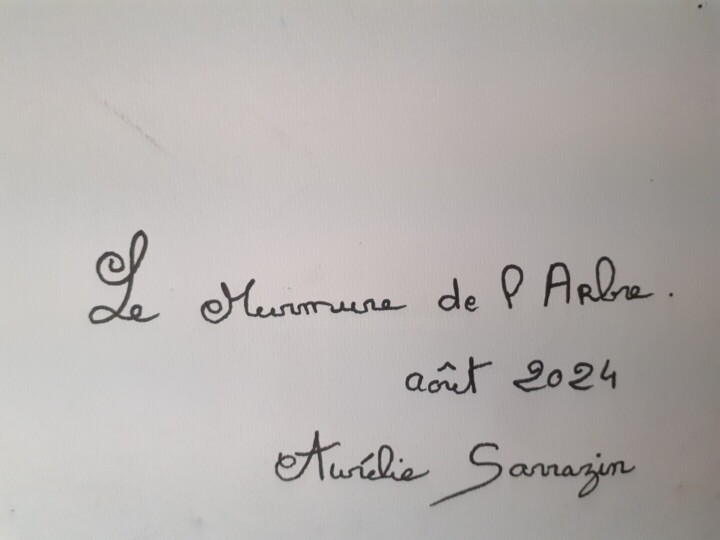 Le Murmure de l Arbre.
août 2024
Aurélie Sarrazin